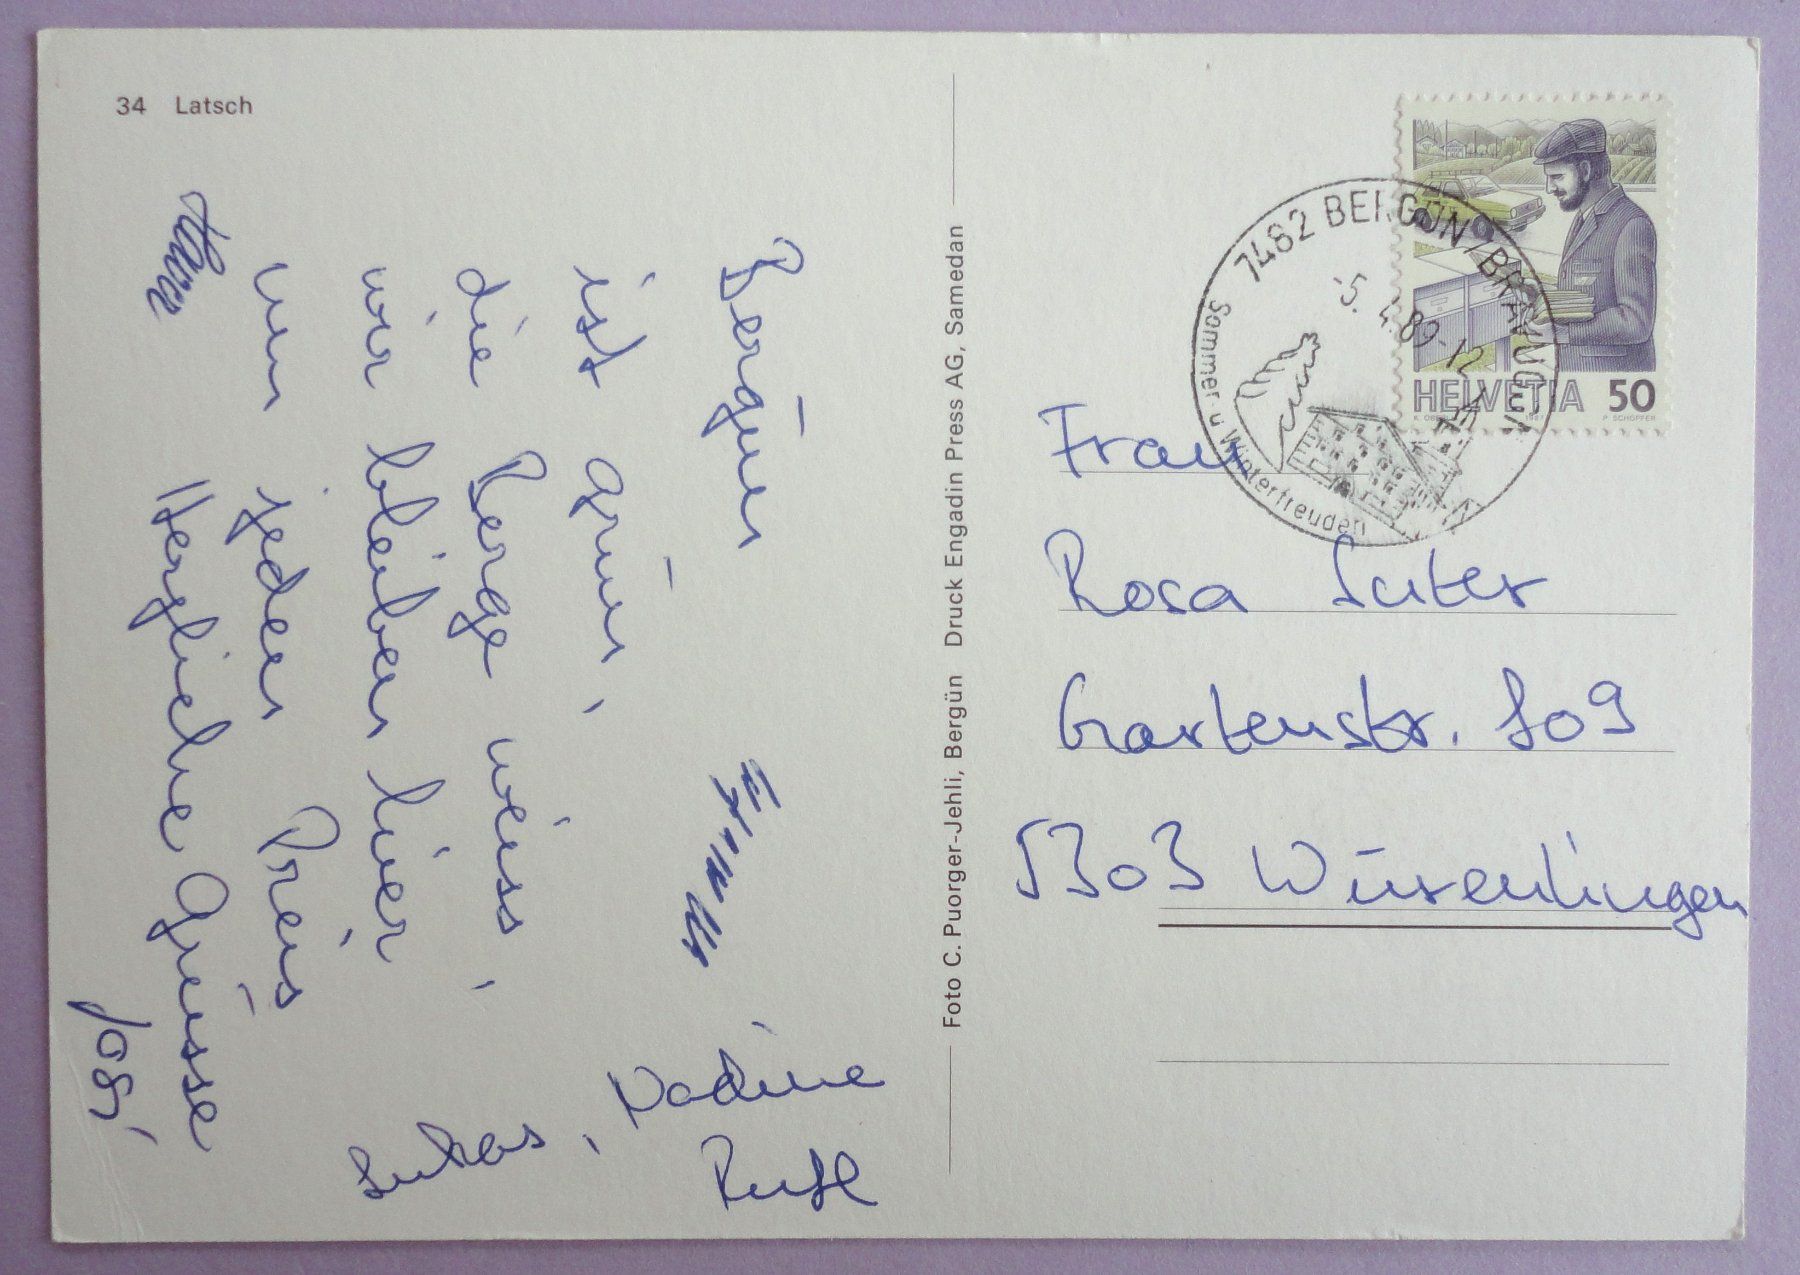 34 Latsch
Bergün
ist grün,
die Berge weiss,
wir bleiben hier
um jeden Preis
Herzliche Grüsse
Josi
Lukas, Nadine
Ruth
Foto C. Puorger-Jehli, Bergün Druck Engadin Press AG, Samedan
7482 BERGÜN/BRAVUOGN
5.4.89-12
Sommer- u Winterfreuden
HELVETIA 50
P. SCHOPFER
Frau
Rosa Suter
Gartenstr. 109
5303 Würenlingen